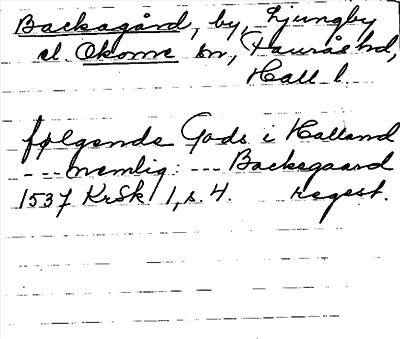 Backagård, by, Ljungby
el. Okome sn, Faurås hd,
Hall l.
følgende Gods i Halland
--- nemlig: --- Backegaard
1537 KrSk 1, s. 4. regest.